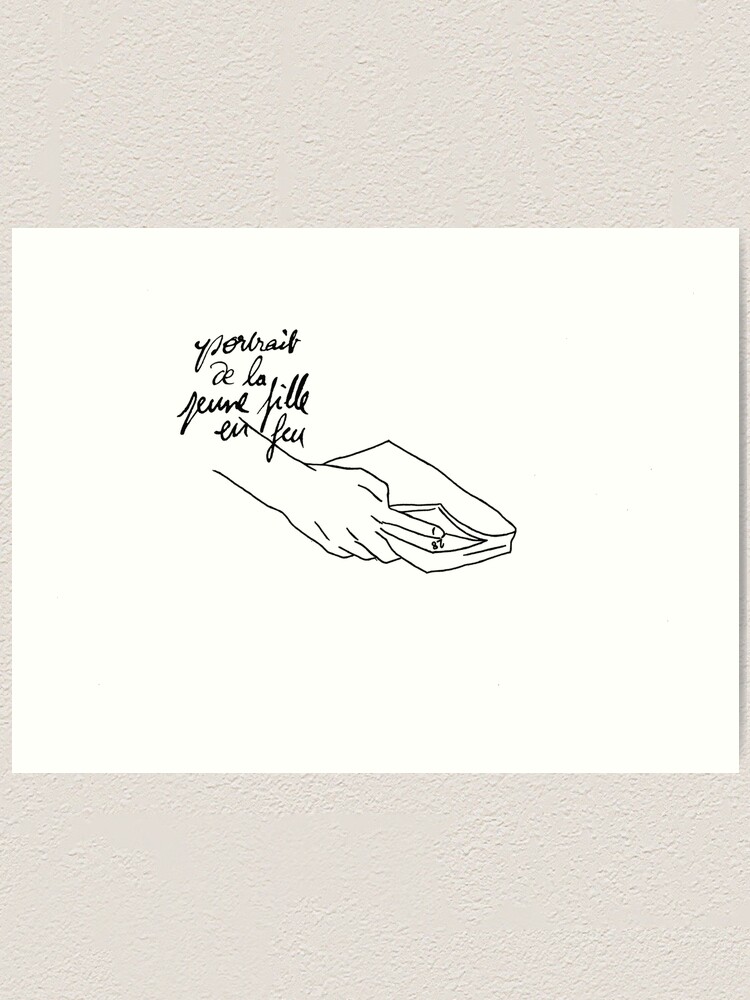 portrait
de la
jeune fille
en feu
82